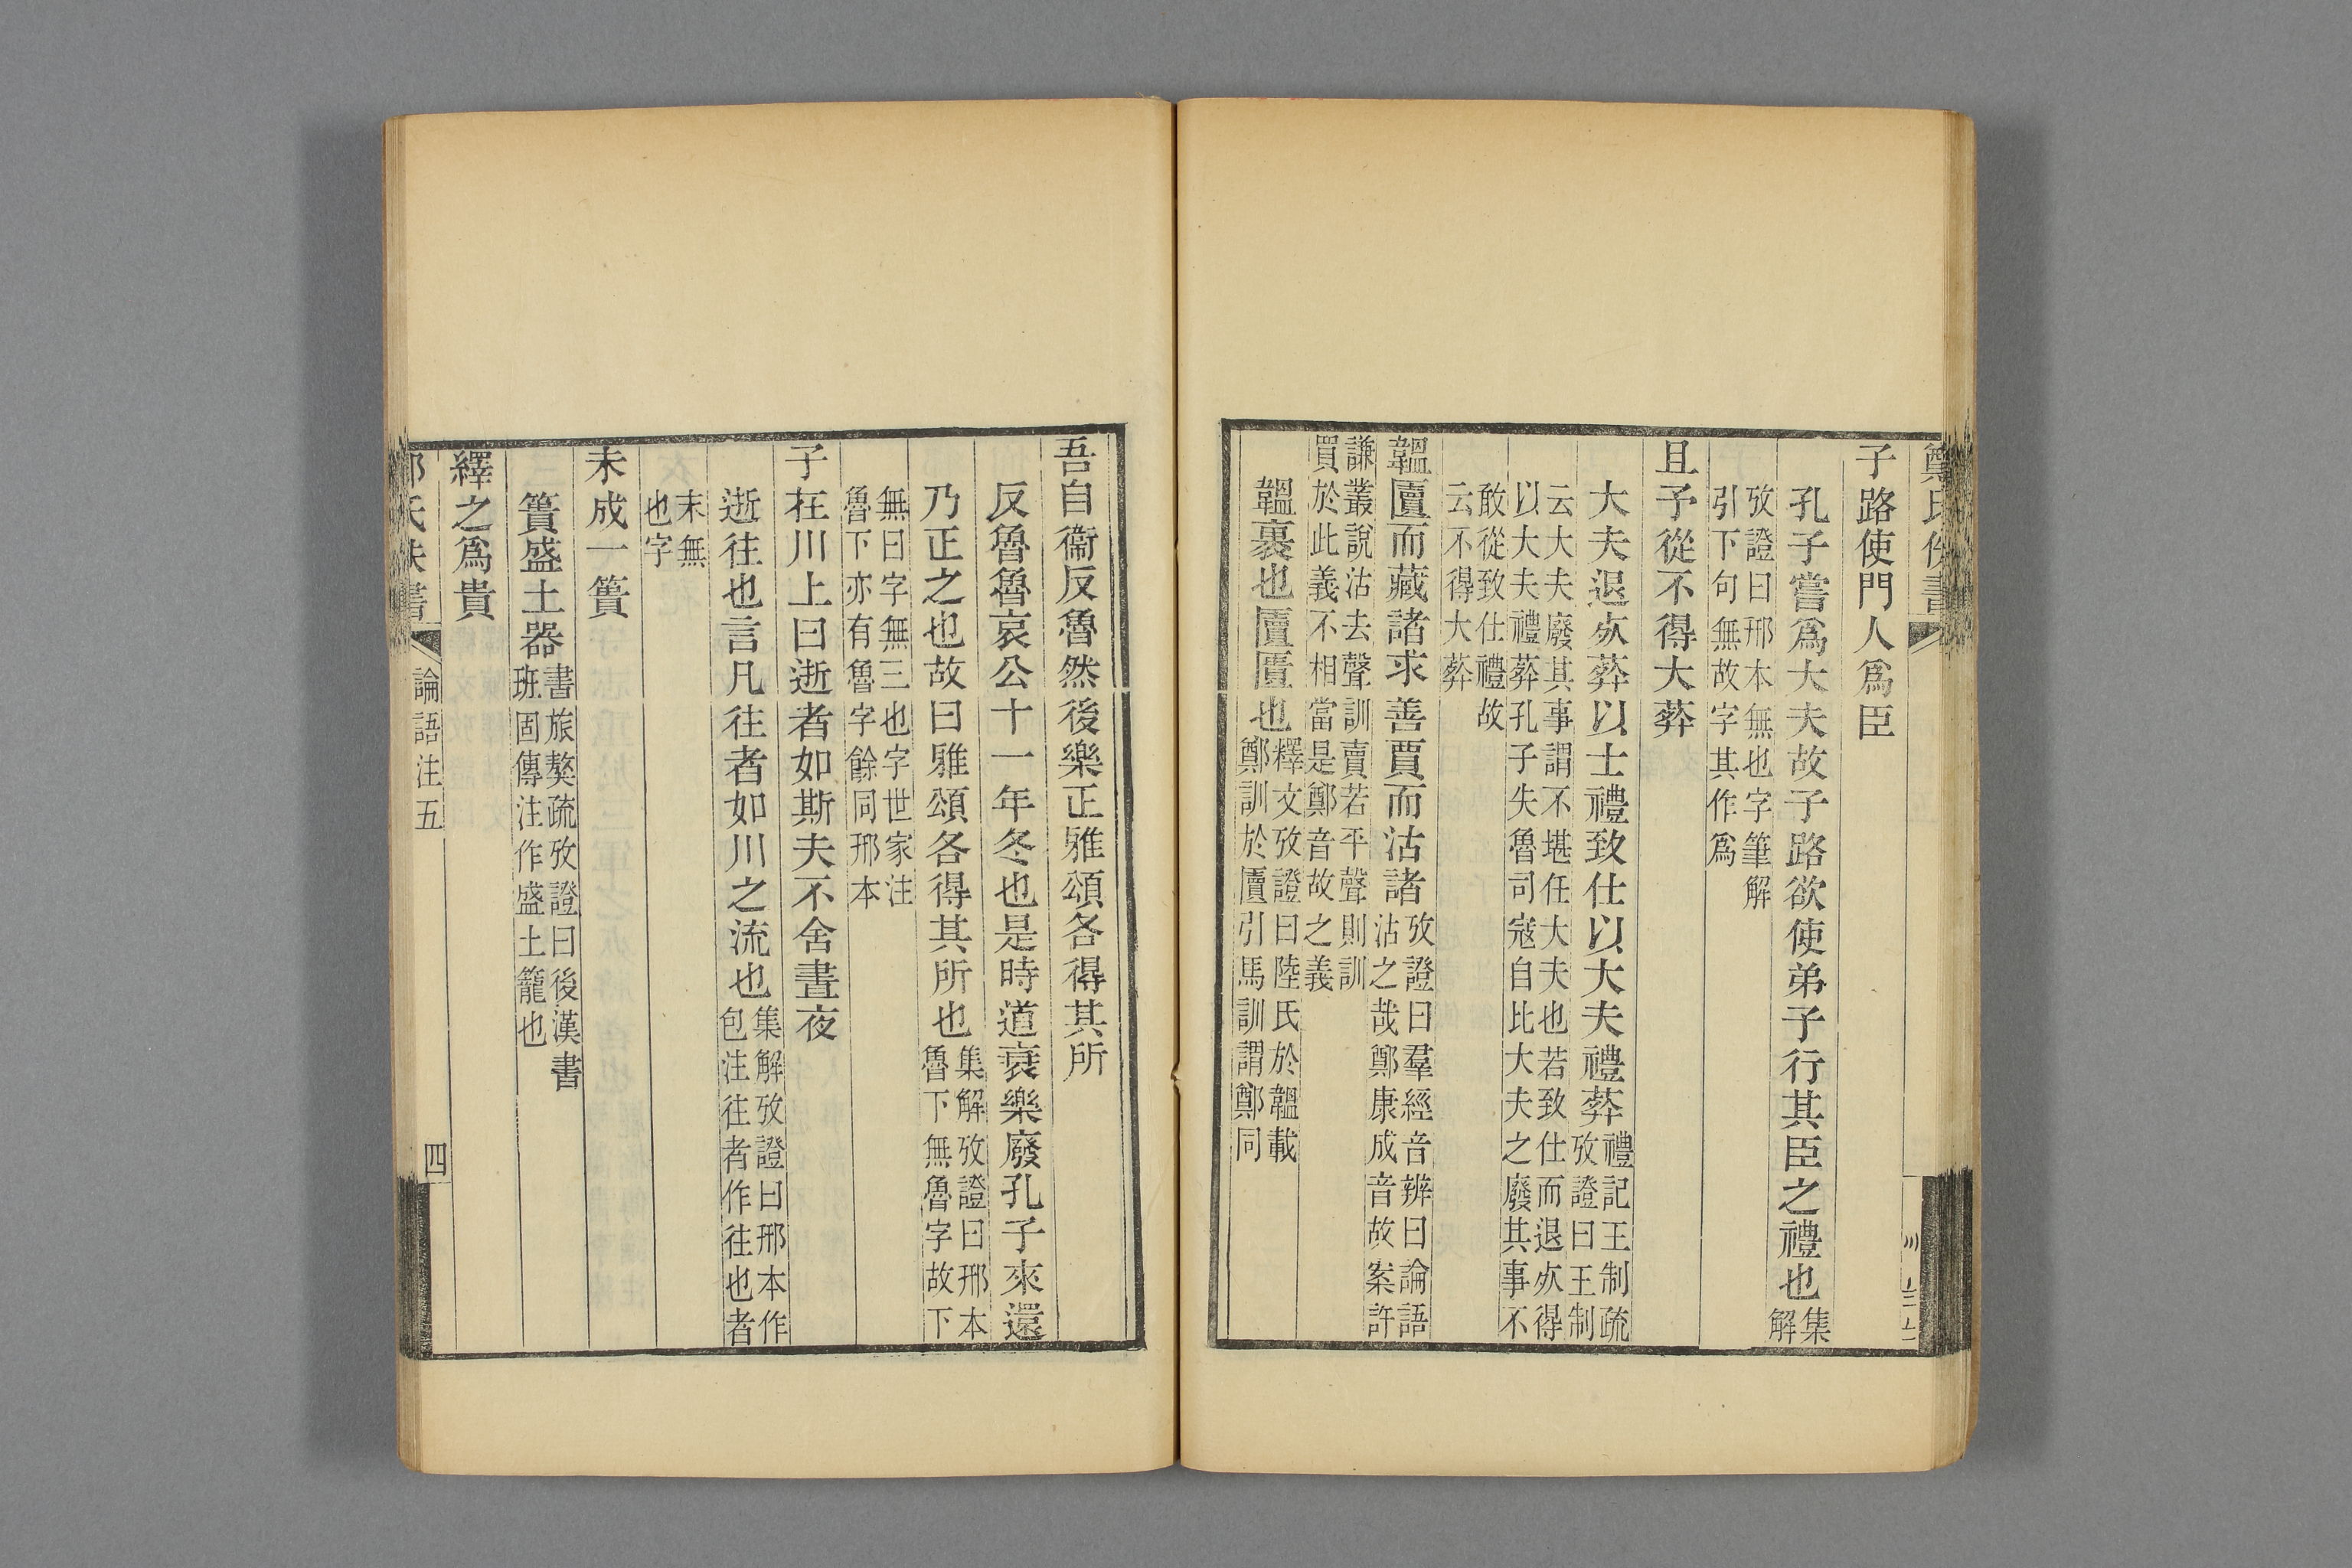 鄭氏佚書
子路使門人爲臣
孔子嘗爲大夫故子路欲使弟子行其臣之禮也集解
攷證曰邢本無也字筆解
引下句無故字其作爲
且予從不得大葬
大夫退死葬以士禮致仕以大夫禮葬禮記王制疏
攷證曰王制
云大夫廢其事謂不堪任大夫也若致仕而退死得
以大夫禮葬孔子失魯司寇自比大夫之廢其事不
敢從致仕禮故
云不得大葬
韞匵而藏諸求善賈而沽諸攷證曰羣經音辨曰論語
沽之哉鄭康成音故案許
謙叢說沽去聲訓賣若平聲則訓
買於此義不相當是鄭音故之義
韞裹也匵匱也釋文攷證曰陸氏於韞載
鄭訓於匵引馬訓謂鄭同
吾自衞反魯然後樂正雅頌各得其所
反魯魯哀公十一年冬也是時道衰樂廢孔子來還
乃正之也故曰雅頌各得其所也集解攷證曰邢本
魯下無魯字故下
無曰字無三也字世家注
魯下亦有魯字餘同邢本
子在川上曰逝者如斯夫不舍晝夜
逝往也言凡往者如川之流也集解攷證曰邢本作
包注往者作往也者
末無
也字
未成一簣
簣盛土器書旅獒疏攷證曰後漢書
班固傳注作盛土籠也
繹之爲貴
論語注五
四